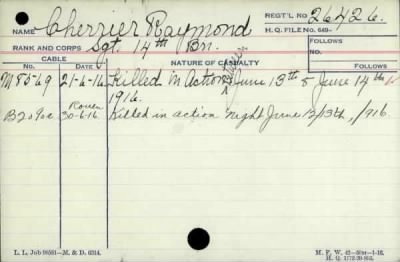 NAME Cherrier Raymond REGT'L No. 26426.
H. Q. FILE No. 649-
RANK AND CORPS Sgt. 14th Bn. FOLLOWS
CABLE NATURE OF CASUALTY
No. DATE FOLLOWS
M8569 21-6-16 Killed in Action between June 13th & June 14th
1916.
Rouen
30-6-16 Killed in action night June 12/13th, 1916.
L. L. Job 98581—M. & D. 6314. M. F. W. 42—50M-1-16.
H. Q. 1772-39-853.